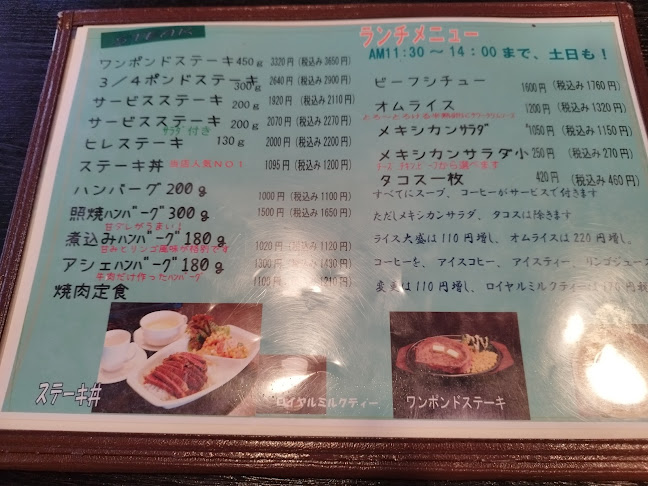 ランチメニュー
AM11:30～14:00まで、土日も！
ワンポンドステーキ450g 3320円(税込み3650円)
3/4ポンドステーキ300g 2640円(税込み2900円)
サービスステーキ200g 1920円(税込み2110円)
サービスステーキ200g 2070円(税込み2270円)
サラダ付き
ヒレステーキ130g 2000円(税込み2200円)
ステーキ丼 当店人気NO1 1095円(税込み1200円)
ハンバーグ200g 1000円(税込み1100円)
照焼ハンバーグ300g 1500円(税込み1650円)
甘ダレがうまい！
煮込みハンバーグ180g 1020円(税込み1120円)
甘みとリンゴ風味が格別です
アシェハンバーグ180g 1300円(税込み1430円)
牛肉だけ作ったハンバーグ
焼肉定食 1100円
ビーフシチュー 1600円(税込み1760円)
オムライス 1200円(税込み1320円)
メキシカンサラダ 1050円(税込み1150円)
メキシカンサラダ小 250円(税込み270円)
チーズ チキンビーフから選べます
タコス一枚 420円(税込み460円)
すべてにスープ、コーヒーがサービスで付きます
ただしメキシカンサラダ、タコスは除きます
ライス大盛は110円増し、オムライスは220円増し、
コーヒーを、アイスコヒー、アイスティー、リンゴジュース
変更は110円増し、ロイヤルミルクティーは170円
ステーキ丼
ロイヤルミルクティー
ワンポンドステーキ